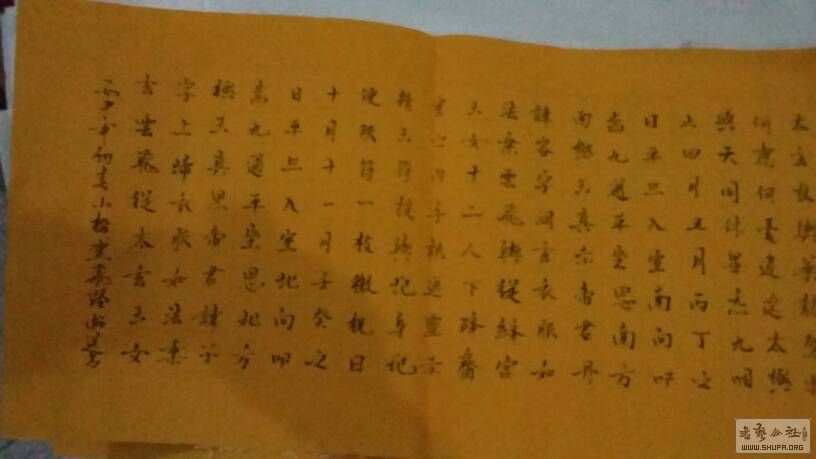 何慮何憂遨遊太極
與天同休畢九咽
止四月五月丙丁之
日平旦入室南向叩
齒九通平坐思南方
南極玉真赤帝君丹
諱容字洞玄衣服如
法乘雲飛輿從絳宮
玉女十二人下降齋
室之內手執通靈赤
精玉符授與兆身兆
便服符一枚微祝曰
十月十一月壬癸之
日平旦入室北向叩
齒九通平坐思北方
極玉真黑帝君諱子
字上歸衣服如法乘
玄雲飛從太玄玉女
年初春小楷靈飛經
WWW.SHUFA.ORG